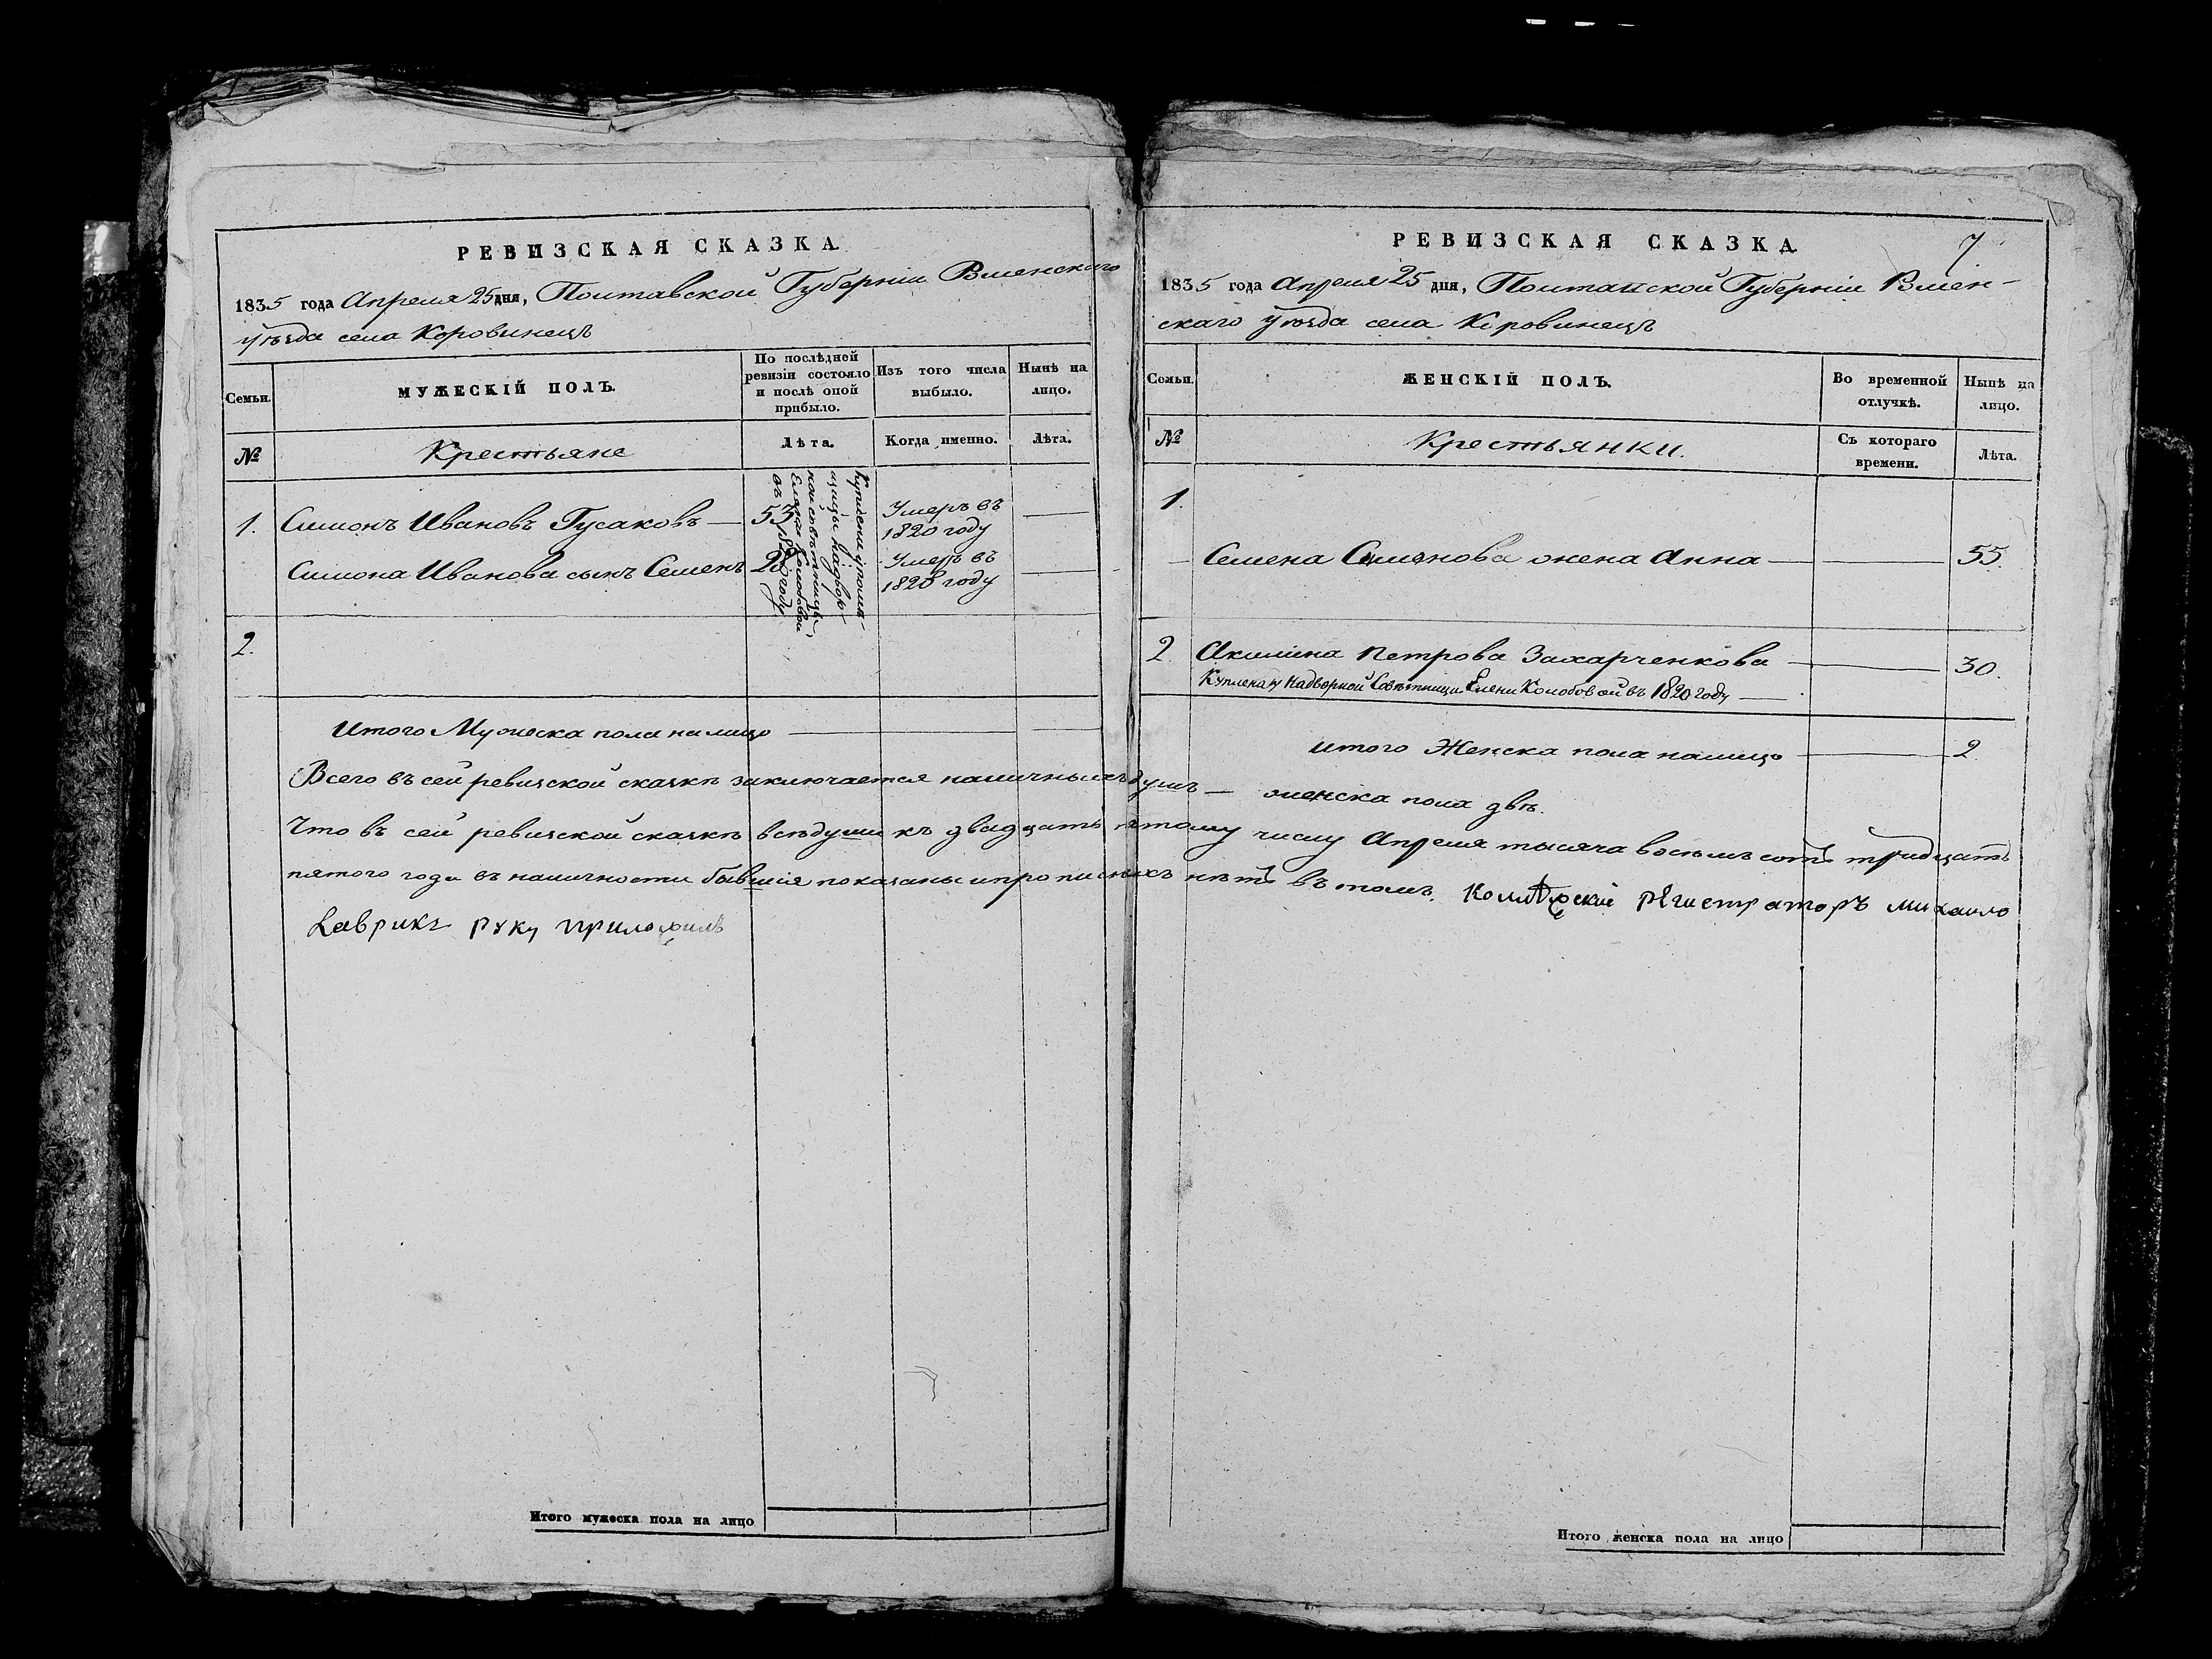 РЕВИЗСКАЯ СКАЗКА.
1835 года Апреля 25 дня, Полтавской Губерніи Роменскаго
уѣзда села Коровинецъ
Семьи.
МУЖЕСКІЙ ПОЛЪ.
По послѣдней
ревизіи состояло
и послѣ оной
прибыло.
Изъ того числа
выбыло.
Нынѣ на
лицо.
№
Крестьяне
Лѣта.
Когда именно.
Лѣта.
1. Симонъ Ивановъ Гусаковъ — 53 Умеръ въ
1820 году
Симона Иванова сынъ Семенъ 28 Умеръ въ
1820 году
Надвор-
ной совѣтницы
Елени Колобовой
въ 1820 году
2.
Итого Мужеска пола на лицо
Всего въ сей ревизской сказкѣ заключается наличныхъ душъ — женска пола двѣ.
Что въ сей ревизской сказкѣ всѣ души къ двадцать пятому числу Апреля тысяча восемьсотъ тридцать
пятого года въ наличности бывшія показаны и прописныхъ нѣтъ въ томъ. Колѣжскіи регистраторъ михаило
Лаврикъ руку приложилъ
Итого мужеска пола на лицо
РЕВИЗСКАЯ СКАЗКА.
7
1835 года Апреля 25 дня, Полтавской Губерніи Ромен-
скаго уѣзда села Коровинецъ
Семьи.
ЖЕНСКІЙ ПОЛЪ.
Во временной
отлучкѣ.
Нынѣ на
лицо.
№
Крестьянки.
Съ котораго
времени.
Лѣта.
1.
Семена Симонова жена Анна — 55.
2. Акилина Петрова Захарченкова — 30.
Куплена у Надворной Совѣтници Елени Колобовой въ 1820 году —
Итого Женска пола налицо — 2.
Итого женска пола на лицо